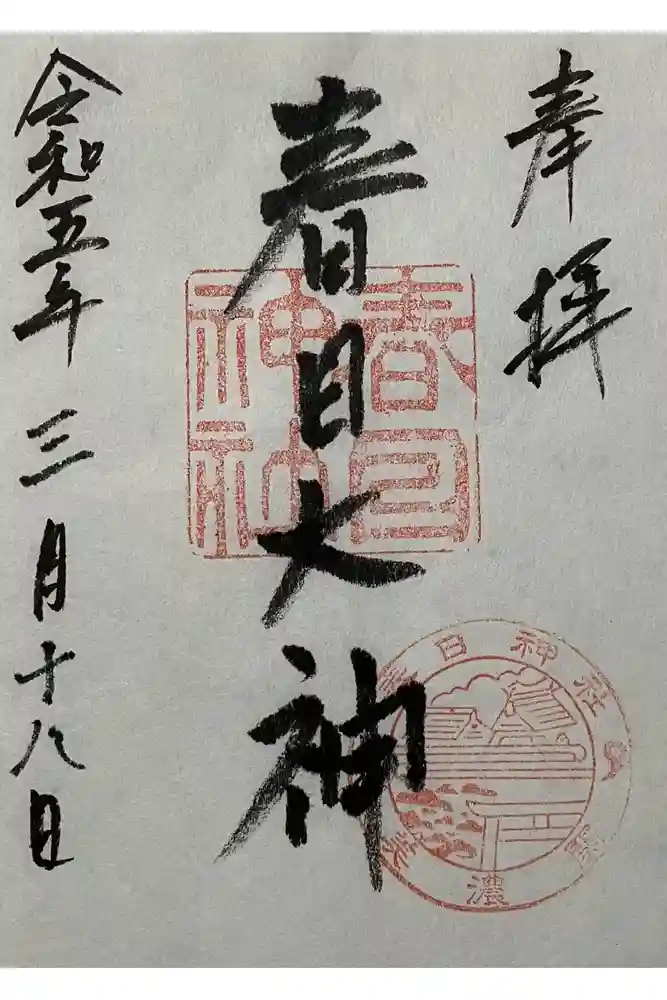 奉拝
春日大神
令和五年三月十八日
春日
神社
春日神社
美濃関